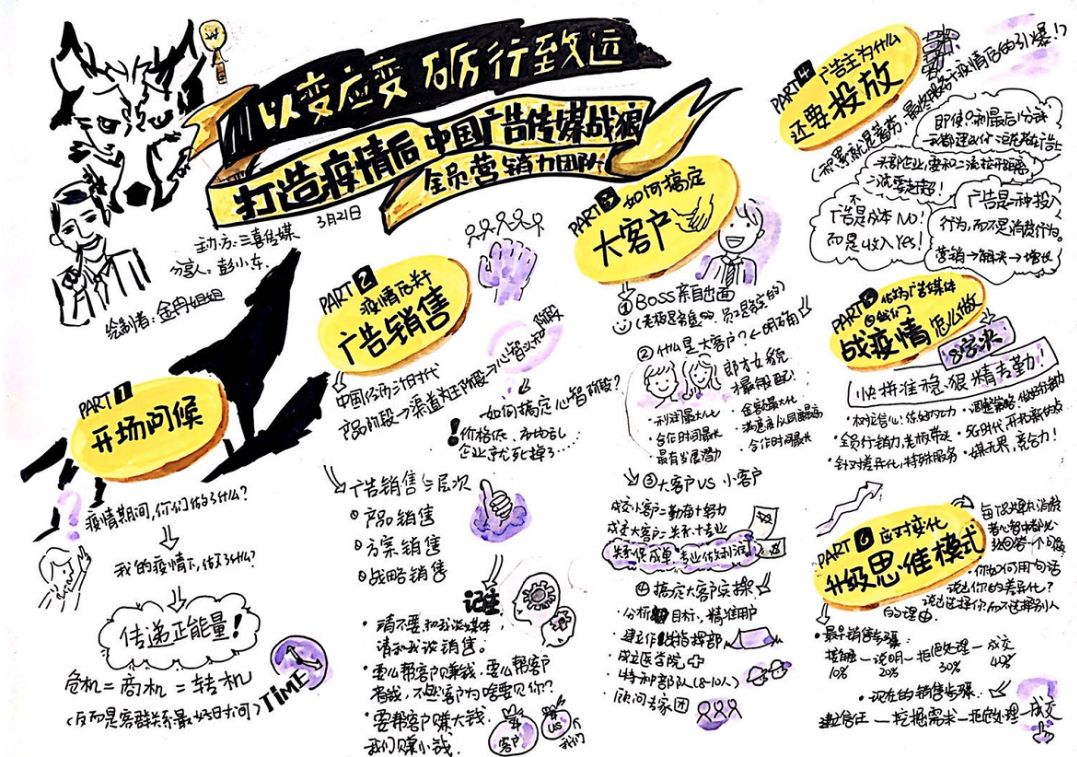 以变应变 砺行致远
打造疫情后中国广告传媒战狼
全员营销力团队
3月21日
主办方：三喜传媒
分享人：彭小东
绘制者：金冉姐姐
PART 1
开场问候
疫情期间，你们做了什么？
我的疫情下，做了3什么？
传递正能量！
危机=商机=转机
（反而是客群关系最好的时间）
TIME
PART 2
疫情后关于
广告销售
中国经济3个时代
产品阶段→渠道为王阶段→心智认知阶段
如何搞定心智阶段？
！价格低、市场乱
企业寻找死掉了……
广告销售三层次
①产品销售
②方案销售
③战略销售
记住
·请不要和我谈媒体，
请和我谈销售。
·要么帮客户赚钱，要么帮客户
省钱，不然客户为啥要见你？
·要帮客户赚大钱，
我们赚小钱。
客户
US
我们
PART 3
如何搞定
大客户
①BOSS亲自出面
②什么是大客户？（明确）
郎才女貌
才最般配！
·利润最大化
·合作时间最长
·最有发展潜力
·金额最大化
·合作时间最长
③大客户 VS 小客户
成交小客户=勤奋+努力
成交大客户=关系+专业
关系促成单，专业做利润
④搞定大客户实操
·分析目标，精准用户
·成立医合院
·特种部队（8-10人）
顾问专家团
PART 4
广告主为什么
还要投放
积累就是蓄势，最终服务于疫情后的引爆！？
即使只剩最后1分钟
头部企业，要和二流拉开距离
二流要超越！
广告不是成本 NO！
而是收入 Yes！
广告是一种投入
行为，而不是消费行为。
营销→解决→增长
PART 5
作为广告媒体
的我们
战疫情 怎么做
8字决
快拼准稳，狠精专勤！
·全员行销力，老板带头
·针对差异化，特殊服务
·5G时代，开拓新的点
·媒无界，竞合力！
PART 6
应对变化
升级思维模式
·你如何用一句话
说出你的差异化？
说出选择你而不选择别人
的理由
·最早销售步骤
接触—说明—拒绝处理—成交
10% 20% 30% 40%
·现在的销售步骤
建立信任—挖掘需求—拒绝处理—成交